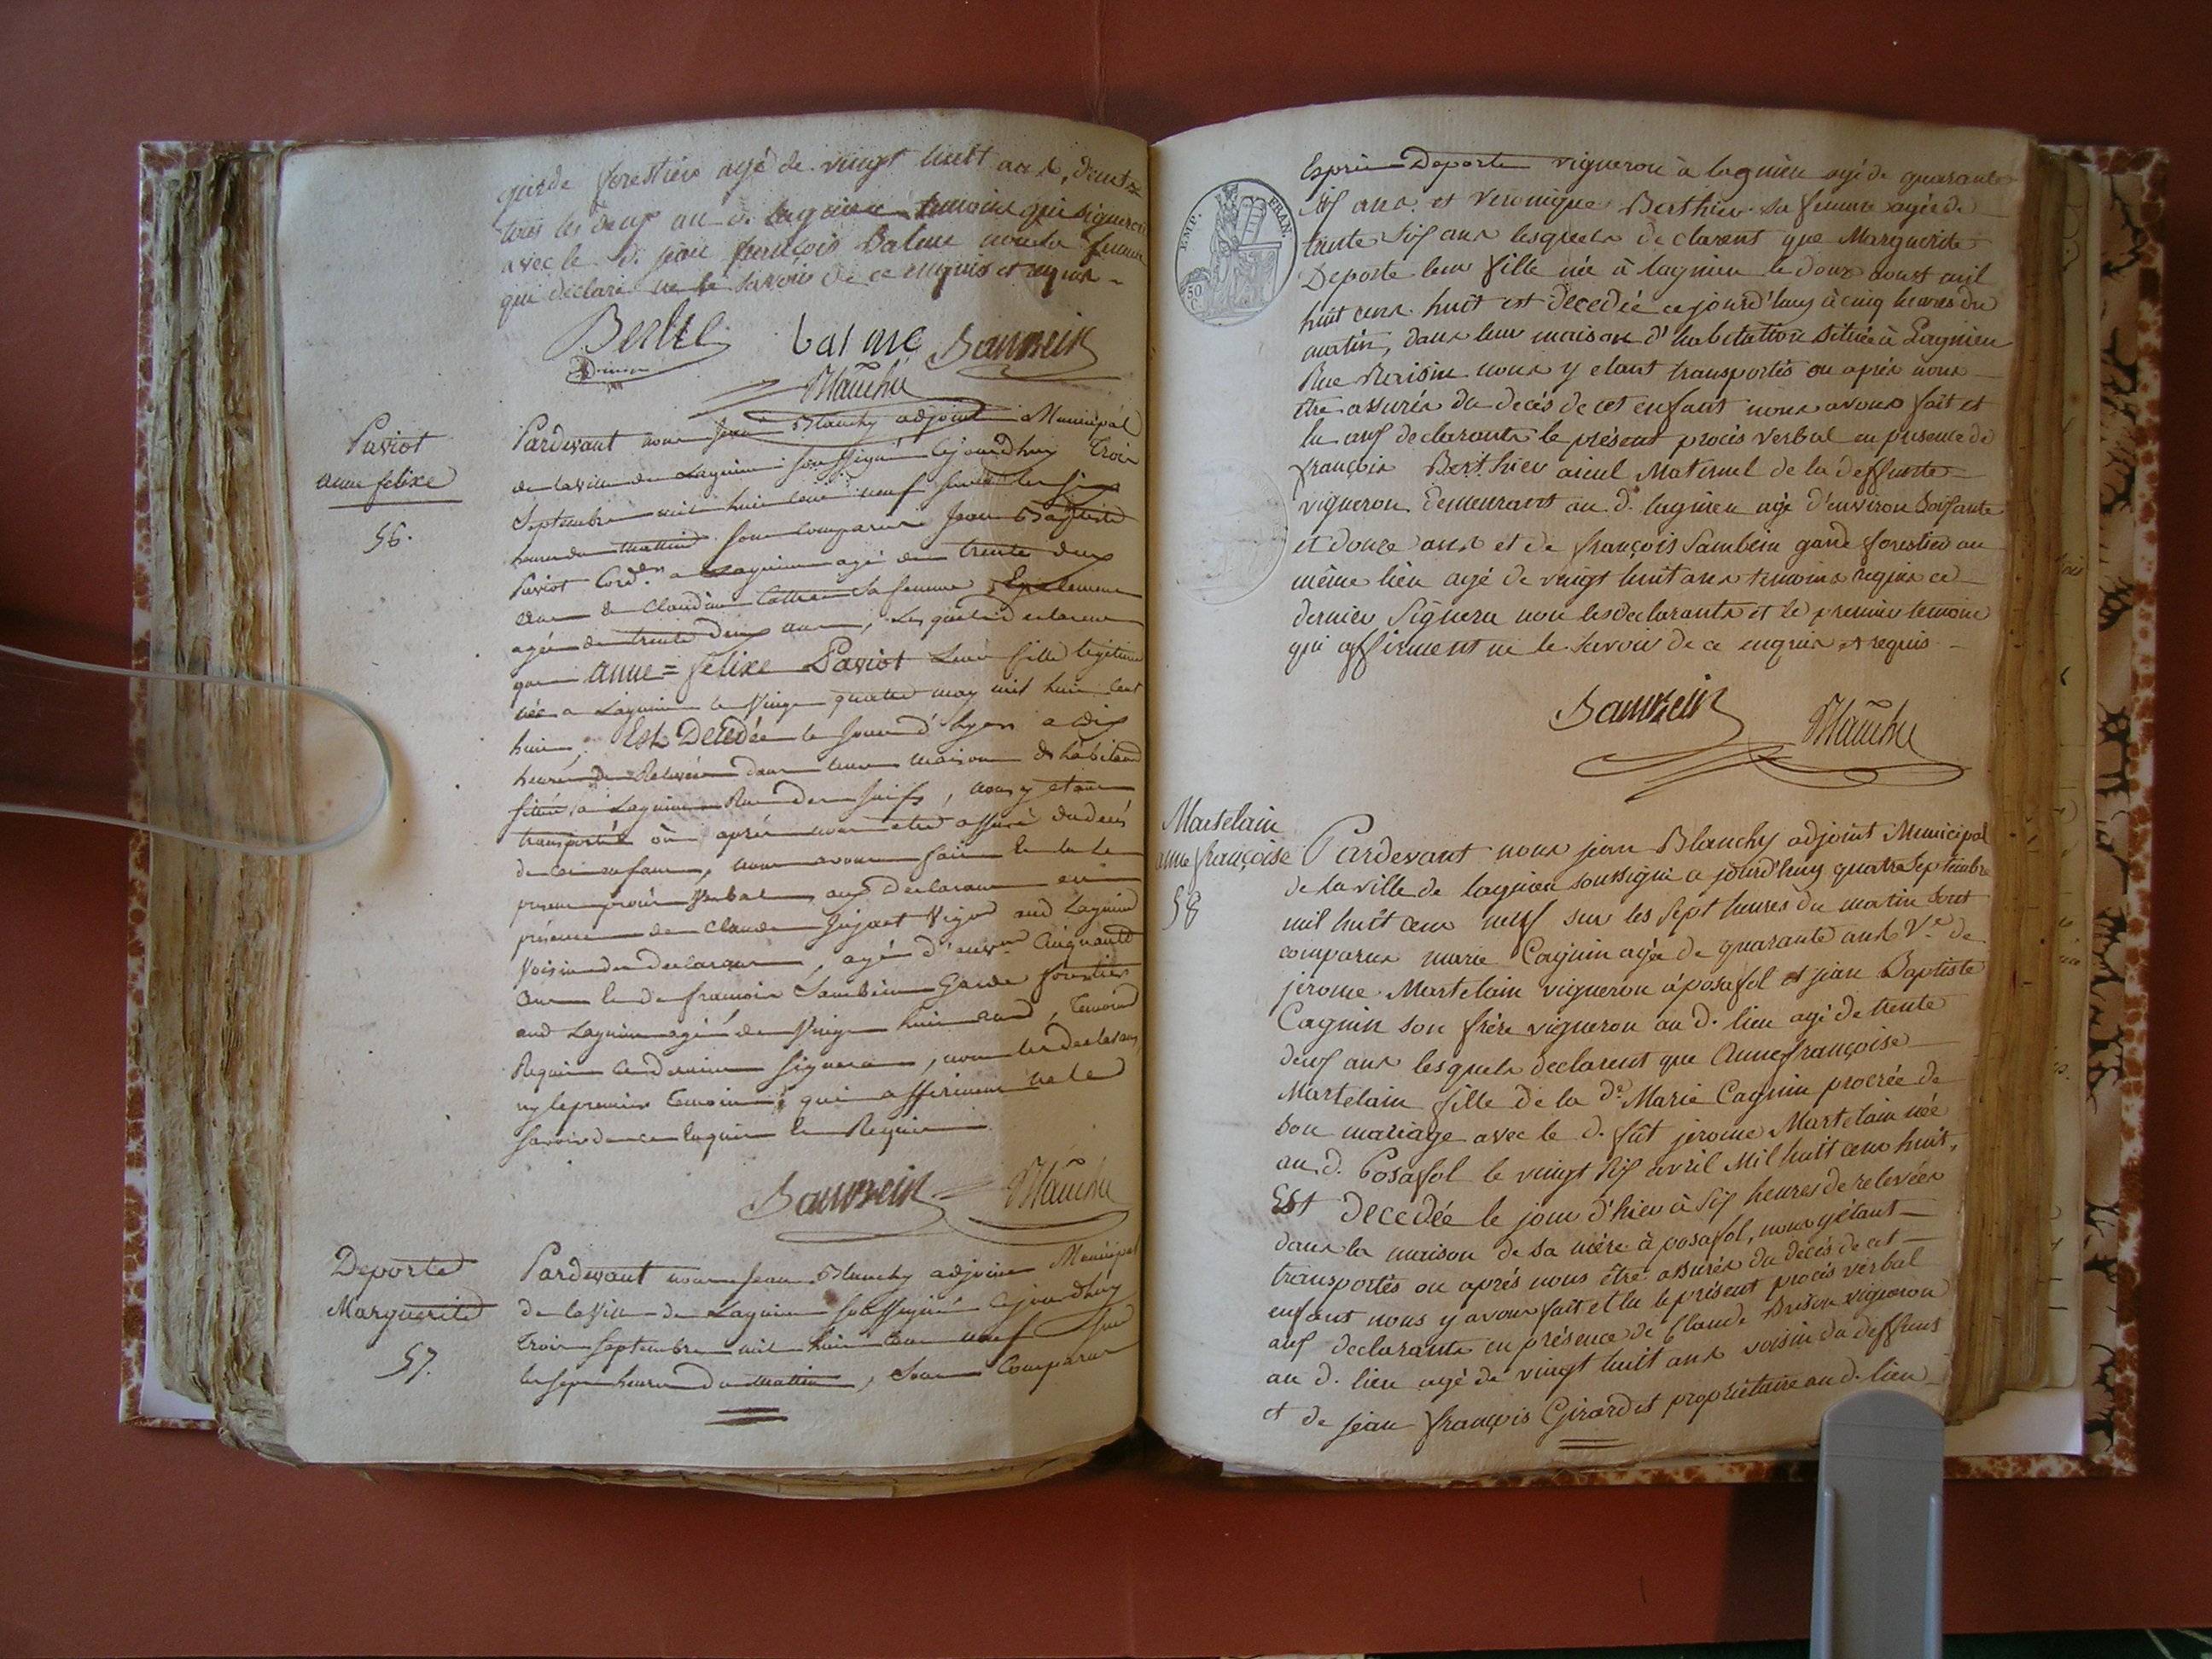 garde forestier agé de vingt huit ans, demts
tous les deux au d. lagnieu temoins qui signeront
avec le d. jean francois Balme non la femme
qui déclare ne le savoir de ce enquis et requis
Balme
Blanchy
Paviot
anne felixe
56.
Pardevant nous Jean Blanchy adjoint Municipal
de la ville de Lagnieu soussigné Cejourdhuy Trois
Septembre mil huit cent neuf sur les six
heures du matin sont comparus Jean Baptiste
Paviot Cordr. a Lagnieu agé de trente deux
ans & Claudine sa femme Egalement
agée de trente deux ans, Lesquels declarent
que anne = felixe Paviot Leur fille légitime
née a Lagnieu le vingt quatre may mil huit cent
huit, Est Décédée le jour d'hyer a dix
heures de Relevée dans leur maison d'habitaôn
située a Lagnieu Rue des Juifs, nous y etant
transportés où après nous etre assuré du decès
de cet enfant, nous avons fait et lu le
present procès verbal aux declarants en
présence de Claude Jujat Vigon aud Lagnieu
Voisin des declarants, agé d'envon Cinquante
ans et de francois Sambein Garde forestier
aud Lagnieu agé de vingt huit ans, Temoins
Requis Ce dernier signera, non les declarans
ny le premier temoin, qui affirment ne le
savoir de ce Enquis et Requis.
Blanchy
Deporte
Marguerite
57.
Pardevant nous Jean Blanchy adjoint Municipal
de la ville de Lagnieu soussigné Cejourdhuy
Trois septembre mil huit cent neuf sur
les sept heures du matin, Sont Comparus
EMP. FRAN.
50 C.
Esprit Deporte vigneron à lagnieu agé de quarante
six ans et Veronique Berthier sa femme agée de
trente six ans lesquels declarent que Marguerite
Deporte leur fille née à lagnieu le douze aoust mil
huit cent huit est decedée cejourd'huy à cinq heures du
matin, dans leur maison d'habitation située à Lagnieu
Rue nous y etant transportés ou après nous
être assurés du decès de cet enfant nous avons fait et
lu aux declarants le présent procès verbal en presence de
françois Berthier aieul Maternel de la deffunte
vigneron demeurant au d. lagnieu agé d'environ soixante
et douze ans et de françois Sambein garde forestier au
même lieu agé de vingt huit ans temoins requis ce
dernier signera non les declarants et le premier temoin
qui affirment ne le savoir de ce enquis et requis
Blanchy
Martelain
anne françoise
58
Pardevant nous jean Blanchy adjoint Municipal
de la ville de lagnieu soussigné cejourd'huy quatre Septembre
mil huit cent neuf sur les sept heures du matin sont
comparus marie Cagnin agée de quarante ans Ve. de
jerome Martelain vigneron à posafol et jean Baptiste
Cagnin son frère vigneron au d. lieu agé de trente
deux ans lesquels declarent que Anne françoise
Martelain fille de la de. Marie Cagnin procrée de
son mariage avec le d. fût jerome Martelain née
au d. Posafol le vingt six avril Mil huit cent huit,
Est Décédée le jour d'hier à six heures de relevées
dans la maison de sa mère à posafol, nous y étant
transportés ou après nous être assurés du decès de cet
enfant nous y avons fait et lu le présent procès verbal
aux declarants en présence de Claude Brison vigneron
au d. lieu agé de vingt huit ans voisin du deffunt
et de jean françois Girardet propriétaire au d. lieu